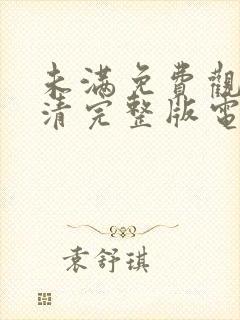 未满免費觀
清完整版電
袁舒琪